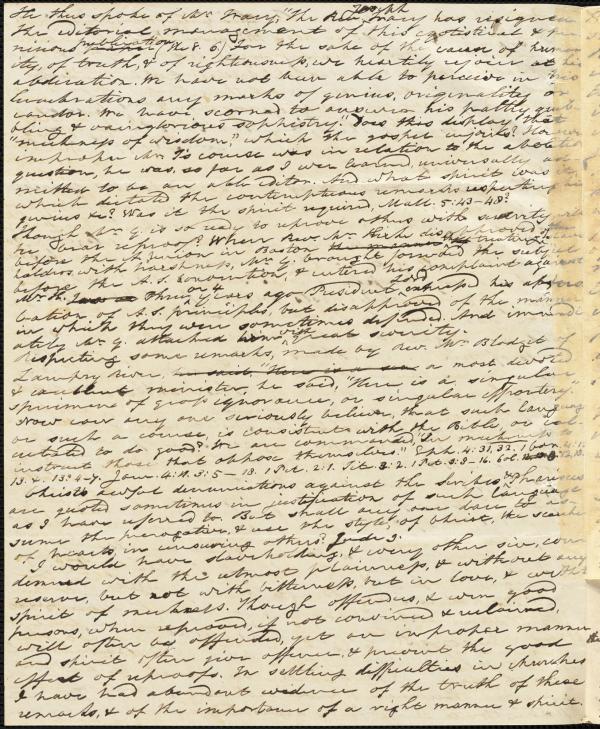 He thus spoke of Mr. Tracy, "The Rev. Joseph Tracy has resigned
the editorial management of this egotistical &
publication (The B. O.) For the sake of the cause of human-
ity, of truth, & of righteousness, we heartily rejoice at his
abdication. We have not been able to perceive in his
lucubrations any marks of genius, originality or
candor. We have scorned to answer his paltry quib-
bling & vainglorious sophistry." Does this display that
"meekness of wisdom," which the gospel enjoins? However
improper Mr. T's course was in relation to the abolition
question, he was, so far as I ever learned, universally ad-
mitted to be an able Editor. And what spirit was it,
which dictated the contemptuous remarks respecting his
genius &c? Was it the spirit required, Matt. 5:43-48?
Though Mr. G. is so ready to reprove others with severity,
he bear reproof? When Rev. Mr. disapproved, 
before the A. S. Union in Boston, the manner of treating
holders, with harshness, Mr. G. brought forward the subject
before the A. S. Convention, & entered his complaint against
Mr. Three or 4 years ago President Lord expressed his appro-
bation of A. S. principles, but disapproved of the manner
in which they were sometimes defended. And immedi-
ately Mr. G. attacked him with great severity.
Respecting some remarks, made by Rev. Mr. Blodget of
Lamprey River, a most devoted
& excellent minister, he said, "Here is a singular
specimen of gross ignorance, or singular effrontery."
Now can any one seriously believe, that such language
or such a course, is consistent with the Bible, or cal-
culated to do good? We are commanded, "In meekness to
instruct those that oppose themselves." Eph. 4:31,32. 1 Cor. 4:12,
13. & 13:4-7. Jam. 4:11. 3:5-13. 1 Pet. 2:1. Tit. 3:2. 1 Pet. 3:8-16.
Christ's awful denunciations against the Scribes & Pharisees
are quoted sometimes in justification of such language
as I have referred to. But shall any one dare to as-
sume the prerogative, & use the style, of Christ, the searcher
of hearts, in censuring others? Jude 9.
I would have slaveholding, & every other sin, con-
demned with the utmost plainness, & without any
reserve, but not with bitterness, but in love, & with a
spirit of meekness. Though offenders, & even good
persons, when reproved, if not convinced & reclaimed,
will often be offended, yet an improper manner
and spirit often give offence, & prevent the good
effect of reproofs. In settling difficulties in churches
I have had abundant evidence of the truth of these
remarks, & of the importance of a right manner & spirit.